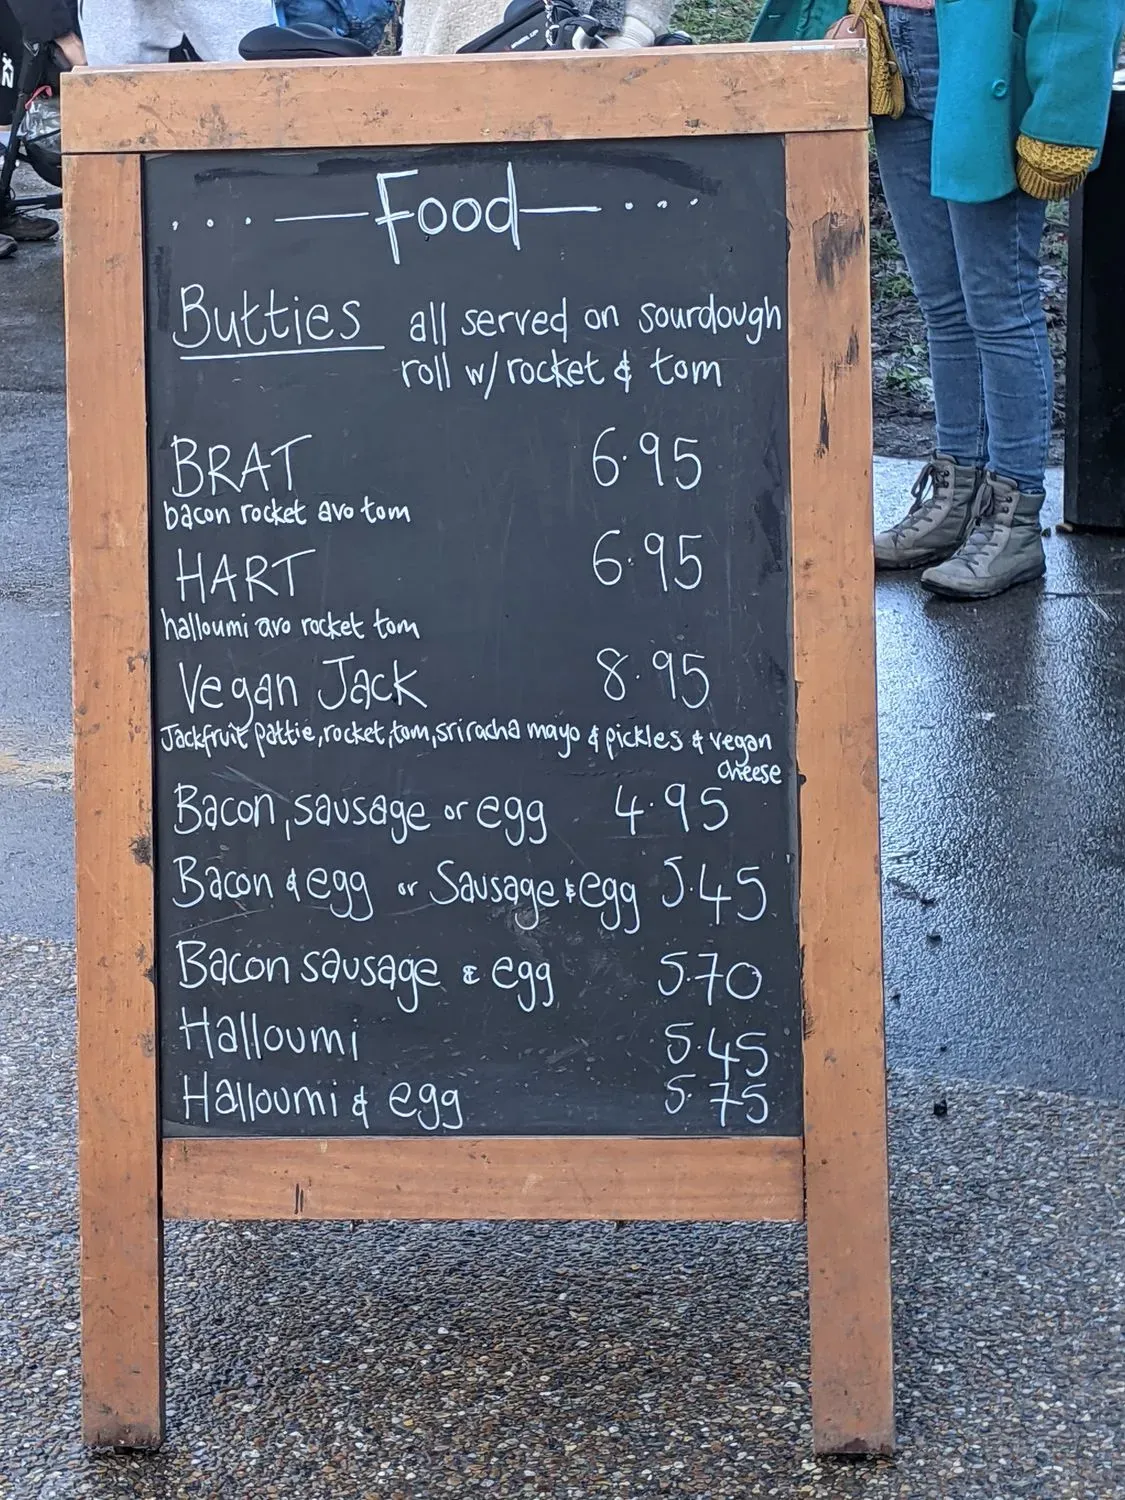 ....—Food—....
Butties all served on sourdough
roll w/ rocket & tom
BRAT 6.95
bacon rocket avo tom
HART 6.95
halloumi avo rocket tom
Vegan Jack 8.95
Jackfruit pattie, rocket, tom, sriracha mayo & pickles & vegan
cheese
Bacon, sausage or egg 4.95
Bacon & egg or Sausage & egg 5.45
Bacon sausage & egg 5.70
Halloumi 5.45
Halloumi & egg 5.75